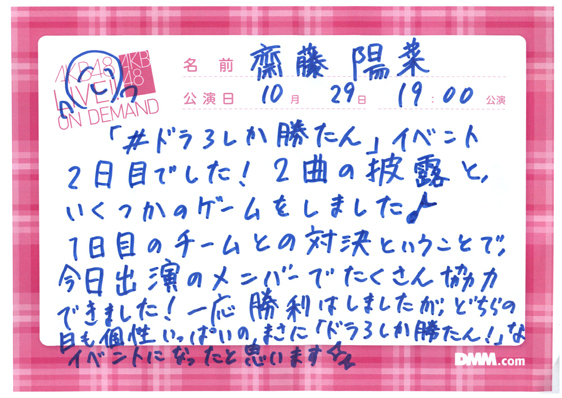 AKB48 LIVE!! ON DEMAND
AKB48
名前 齋藤 陽菜
公演日 10月 29日 19:00 公演
「#ドラ3しか勝たん」イベント
2日目でした!2曲の披露と、
いくつかのゲームをしました♪
1日目のチームとの対決ということで、
今日出演のメンバーでたくさん協力
できました!一応勝利はしましたが、どちらの
日も個性いっぱいの、まさに「ドラ3しか勝たん!」な
イベントになったと思います☆
DMM.com